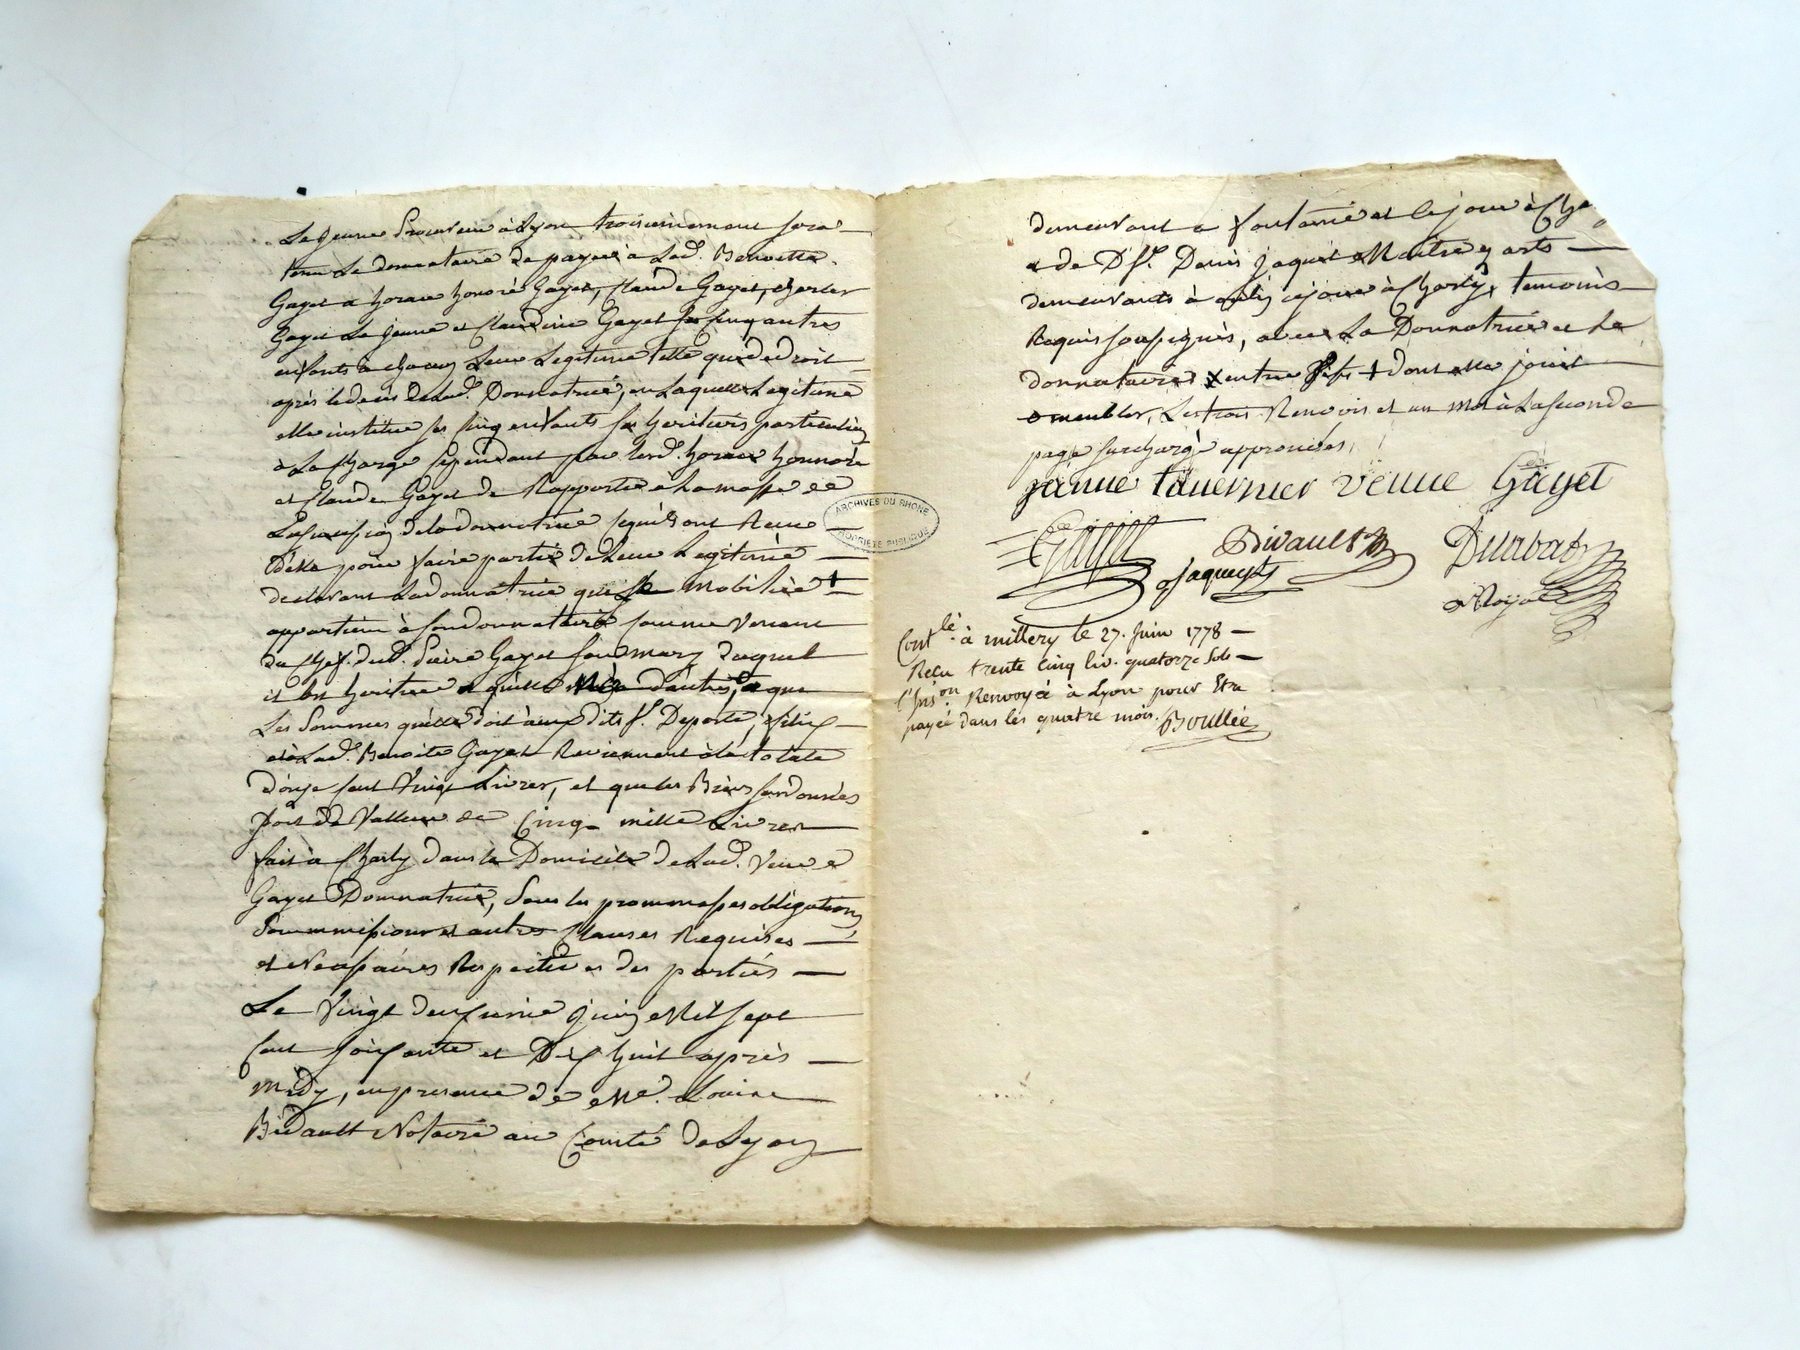 Le jeune Procureur à Lyon troisiemement sera
tenu Le donnataire de payer à Lad. Benoitte
Gayet a horace honoré Gayet, Claude Gayet, Charles
Gayet Le jeune et Claudine Gayet ses cinq autres
enfants à chacun Leur Legitime telle que de droit
après le deces de Lad. Donnatrice, en Laquelle Legitime
elle institue ses cinq enfants ses heritiers particuliers
à La Charge cependant par lesd. horace honnoré
et Claude Gayet de Rapporter à La masse de
La succession de la donnatrice ce qu'ils ont Receu
d'elle pour faire partie de Leur Legitime
declarant La donnatrice que Le mobilier +
appartient à son donnataire comme venant
du Chef dud. Sieur Gayet son mary duquel
il est heritier et qu'elle n'en a d'autres, et que
Les Sommes qu'elle doit auxdits Sr. Deporte,
et à Lad. Benoite Gayet Reviennent à la totale
d'onze cent vingt Livres, et que les Biens sus donnés
sont de valleur de Cinq mille Livres
fait à Charly dans le Domicile de Lad. Veuve
Gayet Donnatrice, Sous les prommesses obligations
Soummissions et autres Clauses Requises
et Necessaires Respectives des parties
Le vingt deuxieme juin Mil sept
Cent soixante et Dix huit après
midy, en presence de Me. Louis
Bidault Notaire au Comté de Lyon
demeurant a fontanes et ce jour à Cha
& de Dt Sr. Denis jaquet Maitre ez arts
demeurants à ce jour à Charly temoins
Requis soussignés, avec La Donnatrice et Le
donnataire + dont elle jouit
o meubles, Les trois Renvois et un mot à La seconde
page surchargé approuvés
janne tavernier veuve Gayet
Gayet Bidault Durbat
Jaquet Royal
Contlé. à millery le 27. Juin 1778
Reçu trente cinq liv. quatorze sols
l'Inson. Renvoyée à Lyon pour Etre
payée dans les quatre mois. Boullée
ARCHIVES DU RHONE
PROPRIETE PUBLIQUE